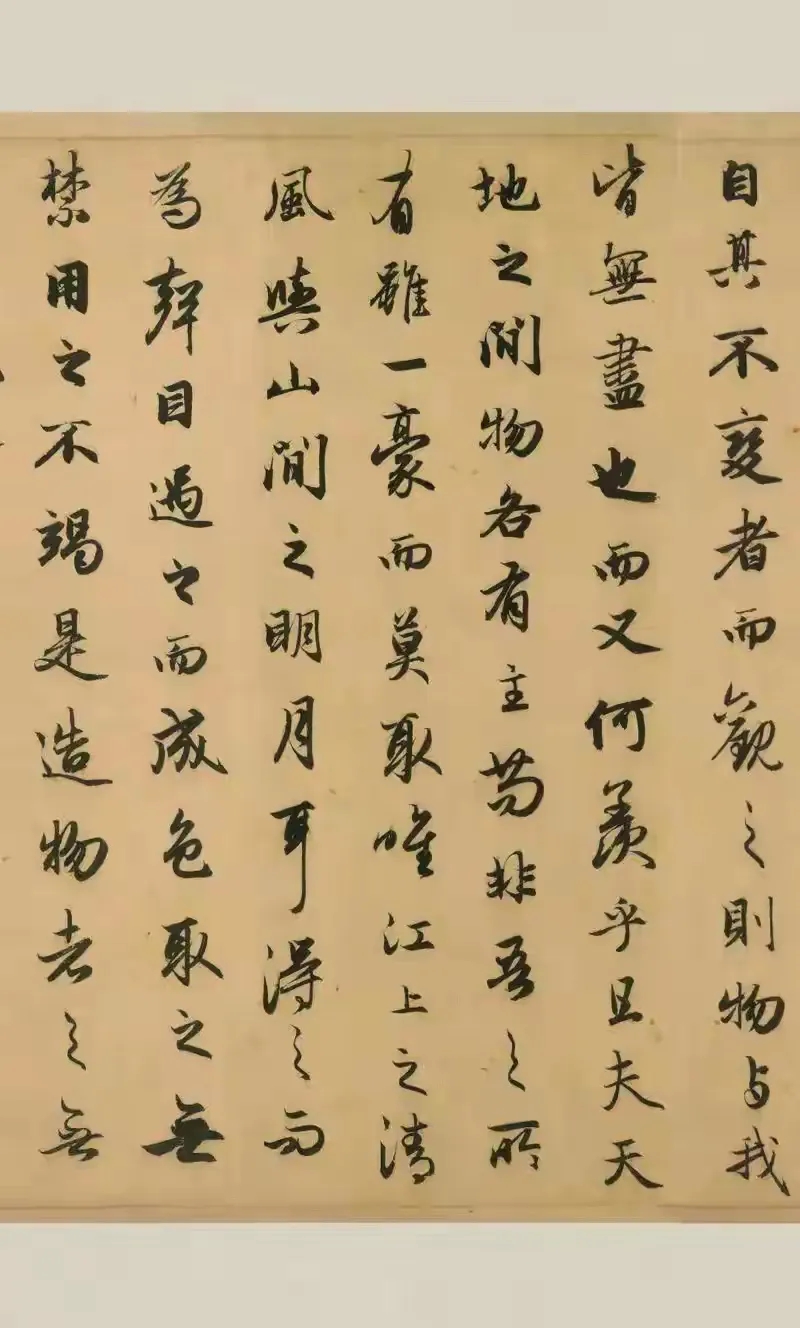 自其不變者而觀之則物與我
皆無盡也而又何羨乎且夫天
地之間物各有主苟非吾之所
有雖一豪而莫取唯江上之清
風與山間之明月耳得之而
為聲目遇之而成色取之無
禁用之不竭是造物者之無